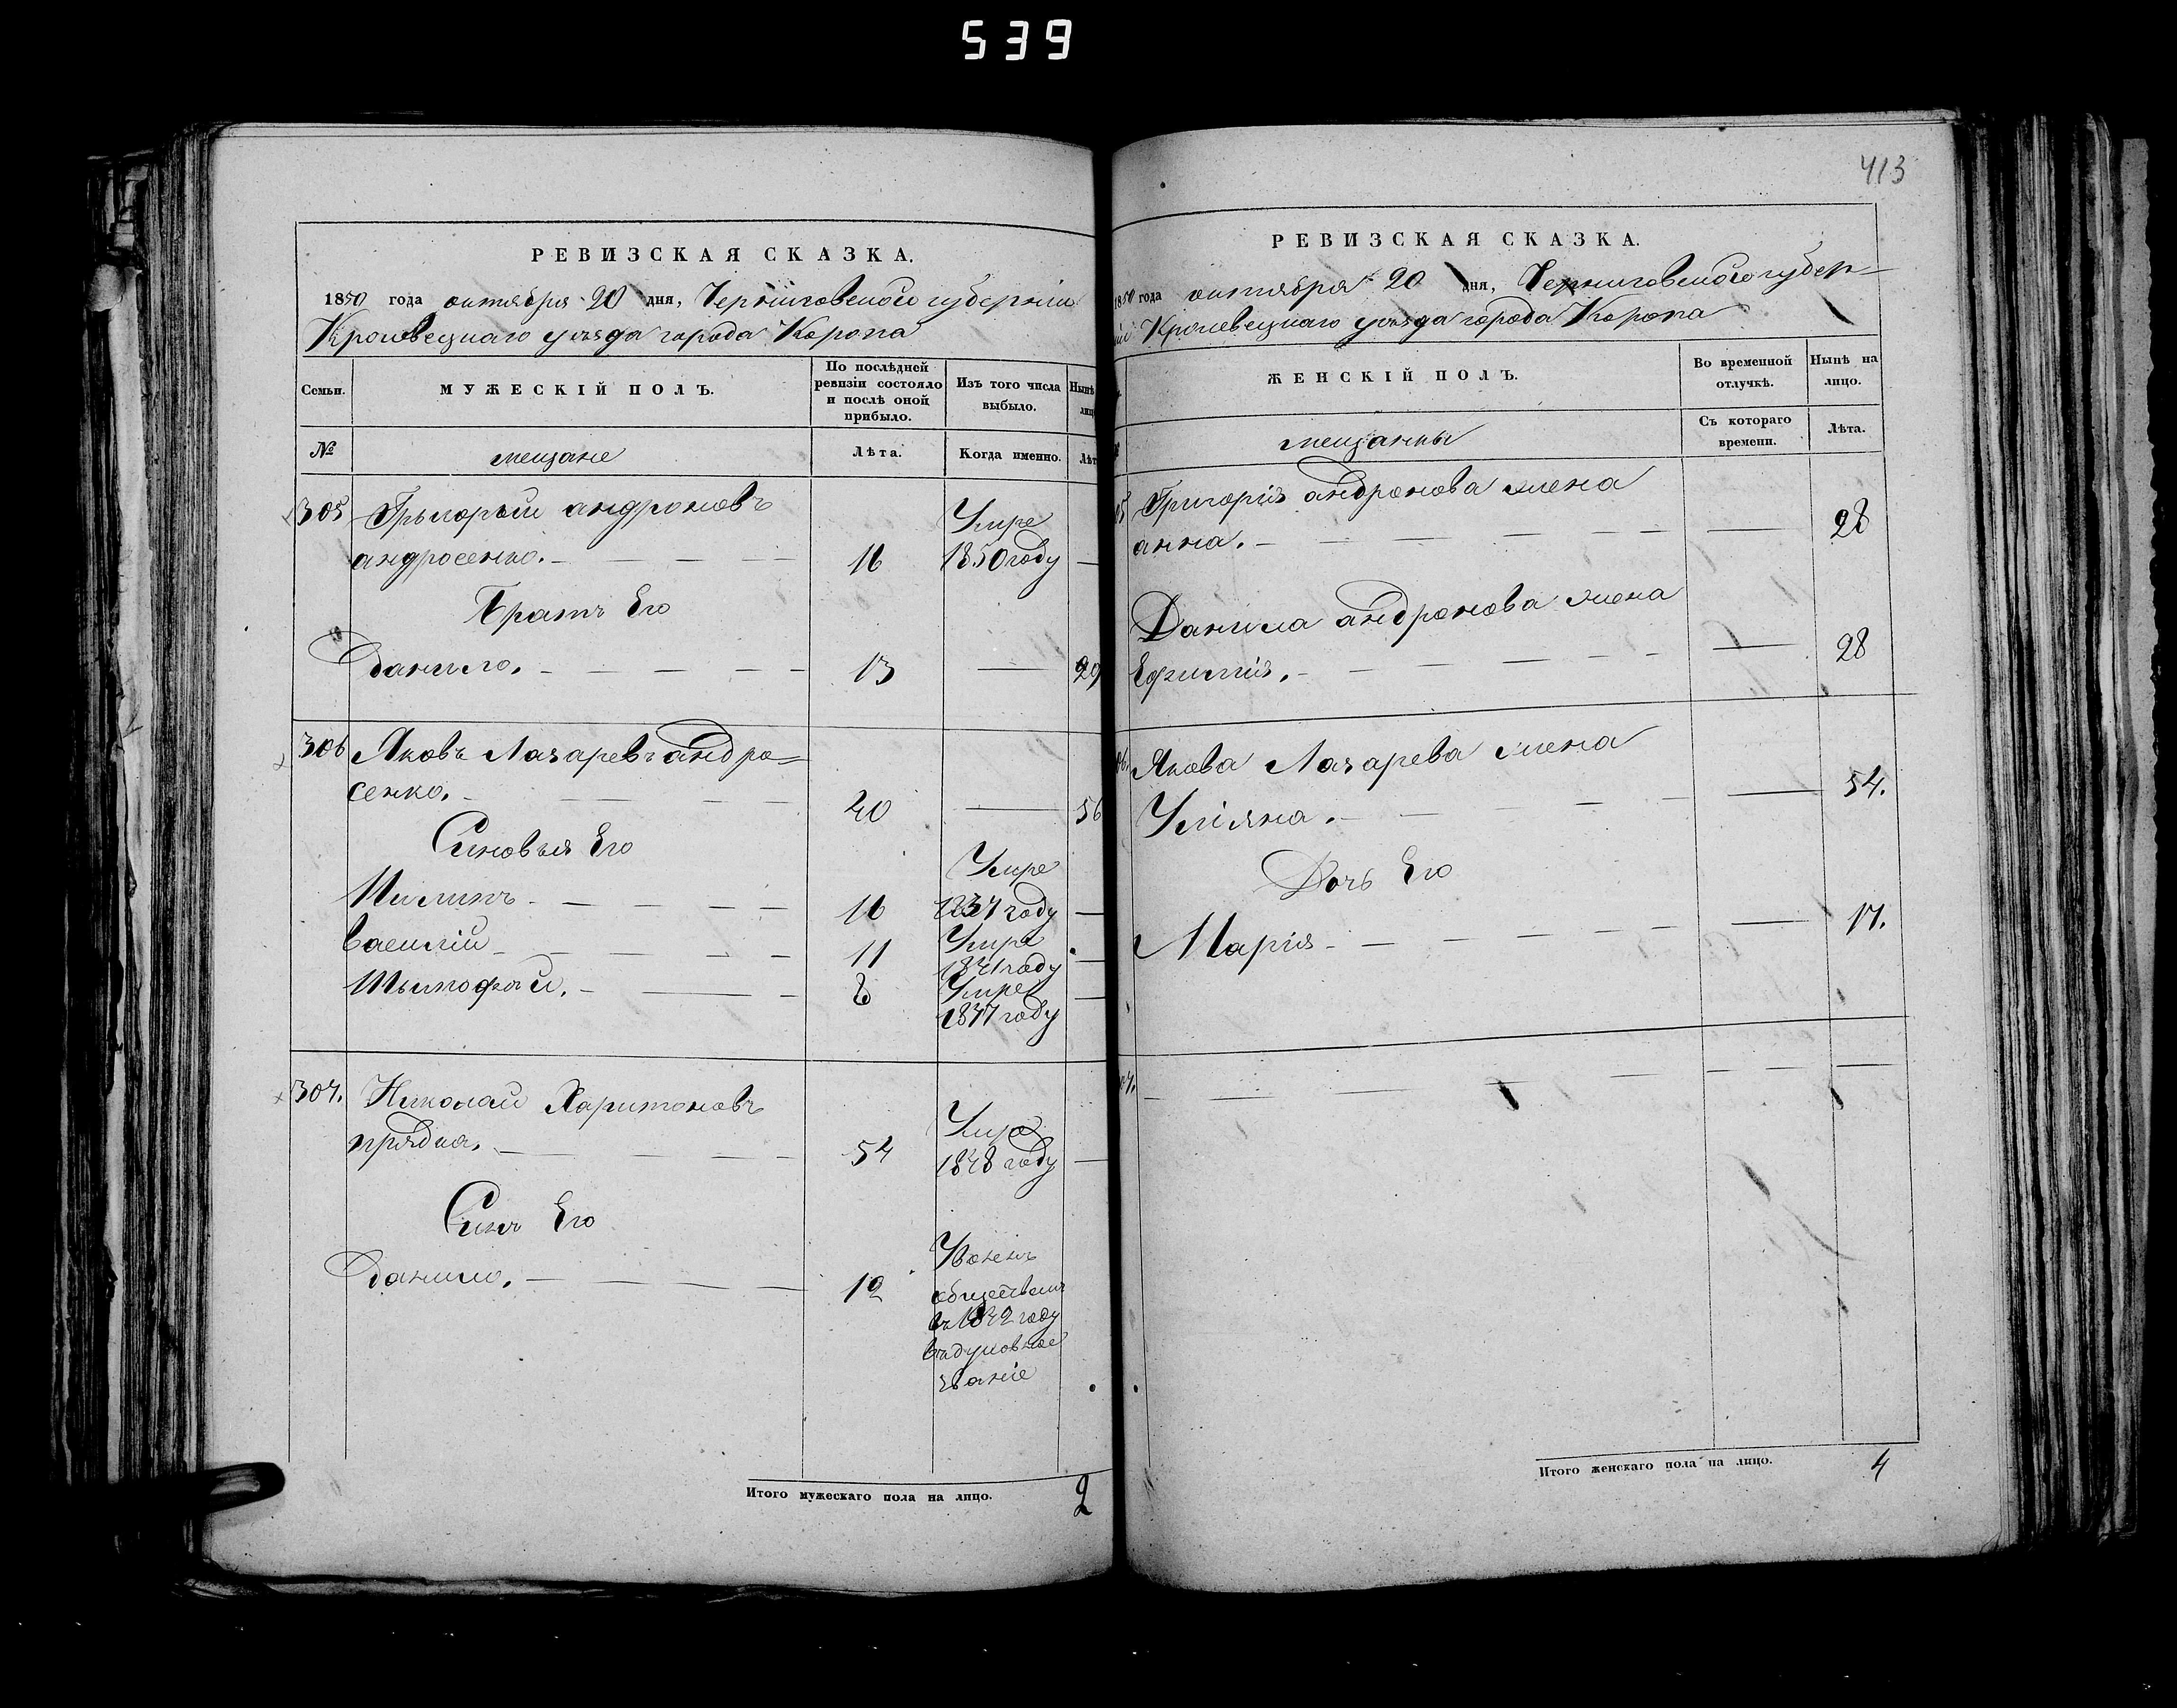 539
РЕВИЗСКАЯ СКАЗКА.
1850 года октября 20 дня, Черниговской губерніи
Кролевецкаго уѣзда города Коропа
Семьи.
МУЖЕСКІЙ ПОЛЪ.
По послѣдней ревизіи состояло и послѣ оной прибыло.
Изъ того числа выбыло.
Нынѣ
лиц
№
мещане
Лѣта.
Когда именно.
Лѣт
305 Грыгорый андроновъ Умре
андросенко. 16 1850 году —
Братъ Его
Данило. 13 — 29
306 Яковъ Лазаревъ андро=
сенко. 40 — 56
Синовья Его
Умре
Пилипъ 16 1837 году —
Василій 11 Умре 1841 году —
Тымофѣй. 8 Умре 1847 году —
307. Николай Харитоновъ Умре
прядка. 54 1848 году —
Синъ Его
Данило. 12 Уволенъ
обществомъ
въ 1842 году
въ духовное
званіе
Итого мужескаго пола на лицо. 2
413
РЕВИЗСКАЯ СКАЗКА.
1850 года октября 20 дня, Черниговской губер=
ніи Кролевецкаго уѣзда города Коропа
ЖЕНСКІЙ ПОЛЪ.
Во временной отлучкѣ.
Нынѣ на лицо.
мещанкы
Съ котораго времени.
Лѣта.
05 Григорія андронова жена
анна. — 28
Данила андронова жена
Ефимія. — 28
06. Якова Лазарева жена
Уліяна. — 54.
Дочь Его
Марія — 17.
07.
Итого женскаго пола на лицо. 4